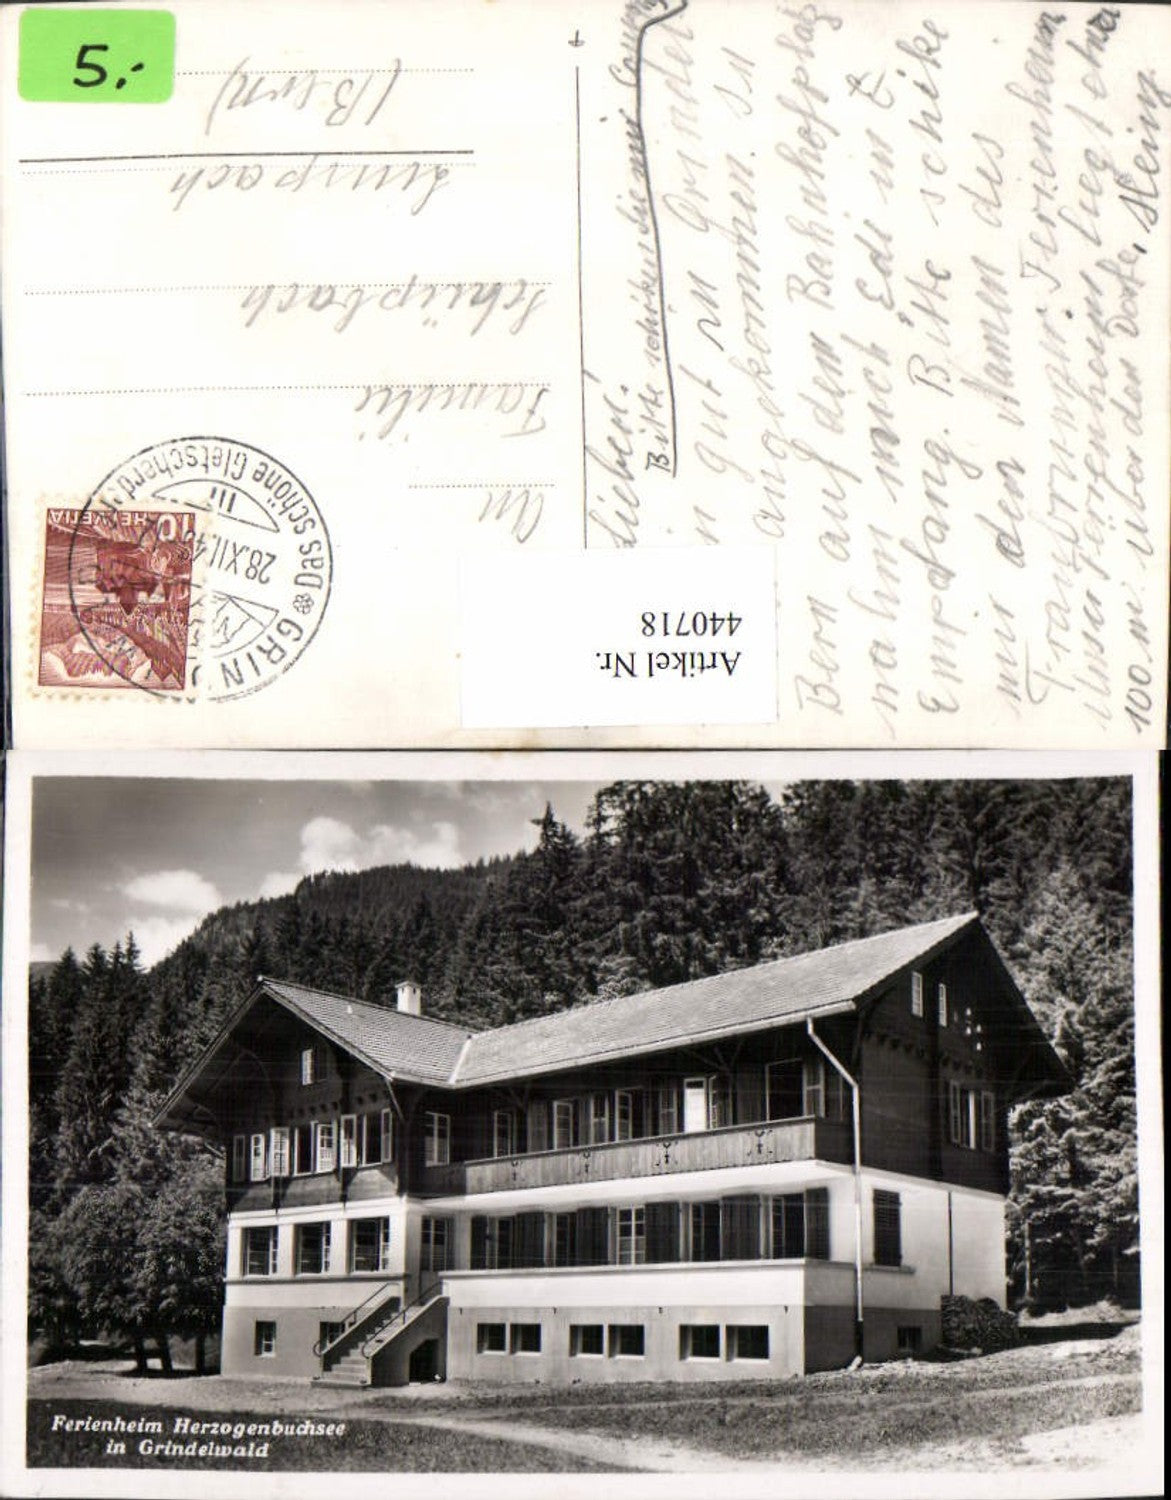 5.-
An
Familie
Schüpbach
Limpach
(Bern)
HELVETIA
10
GRINDELWALD
Das schöne Gletscherdorf
28.XII.4
Artikel Nr.
440718
Liebe!
Bitte schicken Sie mir
gut in Grindel
angekommen. In
Bern auf dem Bahnhofplatz
nahm mich Edi in
Empfang. Bitte schike
mir den Namen des
Ferienheim
Unser Ferienheim liegt etwa
100 m. über dem Dorfe. Heinz
Ferienheim Herzogenbuchsee
in Grindelwald